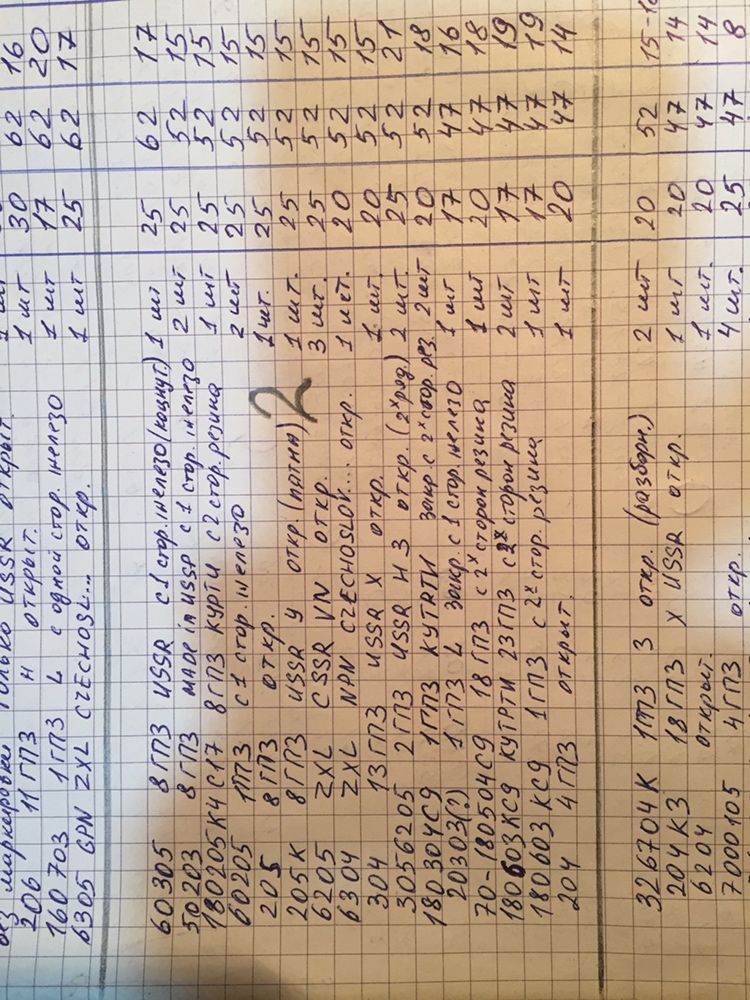 без маркировки только USSR открыт 1 шт
206 11 ГПЗ Н открыт. 1 шт 30 62 16
160703 1 ГПЗ L с одной стор. железо 1 шт 17 62 20
6305 GPN ZXL CZECHOSL... откр. 1 шт 25 62 17
60305 8 ГПЗ USSR с 1 стор. железо (коцнут.) 1 шт 25 62 17
50203 8 ГПЗ MADE in USSR с 1 стор. железо 2 шт 25 52 15
180205 К4 С17 8 ГПЗ КУРТИ с 2 стор. резина 1 шт 25 52 15
60205 1ГПЗ с 1 стор. железо 2 шт 25 52 15
205 8 ГПЗ откр. 1 шт. 25 52 15
205К 8 ГПЗ USSR У откр. (пятна) 1 шт. 25 52 15
2
6205 ZXL CSSR VN откр. 3 шт. 25 52 15
6304 ZXL NPN CZECHOSLOV.... откр. 1 шт. 20 52 15
304 13 ГПЗ USSR X откр. 1 шт. 20 52 15
3056205 2 ГПЗ USSR Н З откр. (2х ряд) 2 шт. 25 52 21
180304 С9 1 ГПЗ КУТРТИ закр. с 2х стор. рез. 2 шт 20 52 18
20303(?) 1 ГПЗ L закр. с 1 стор. железо 1 шт 17 47 16
70-180504 С9 18 ГПЗ с 2х сторон резина 1 шт 20 47 18
180603 КС9 КУТРТИ 23 ГПЗ с 2х сторон резина 2 шт 17 47 19
180603 КС9 1 ГПЗ с 2х стор. резина 1 шт 17 47 19
204 4 ГПЗ открыт. 1 шт 20 47 14
326704 К 1ГПЗ 3 откр. (разборн.) 2 шт 20 52 15-16
204 К3 18 ГПЗ X USSR откр. 1 шт 20 47 14
6204 открыт. 1 шт. 20 47 14
7000105 4 ГПЗ откр. 4 шт. 25 47 8